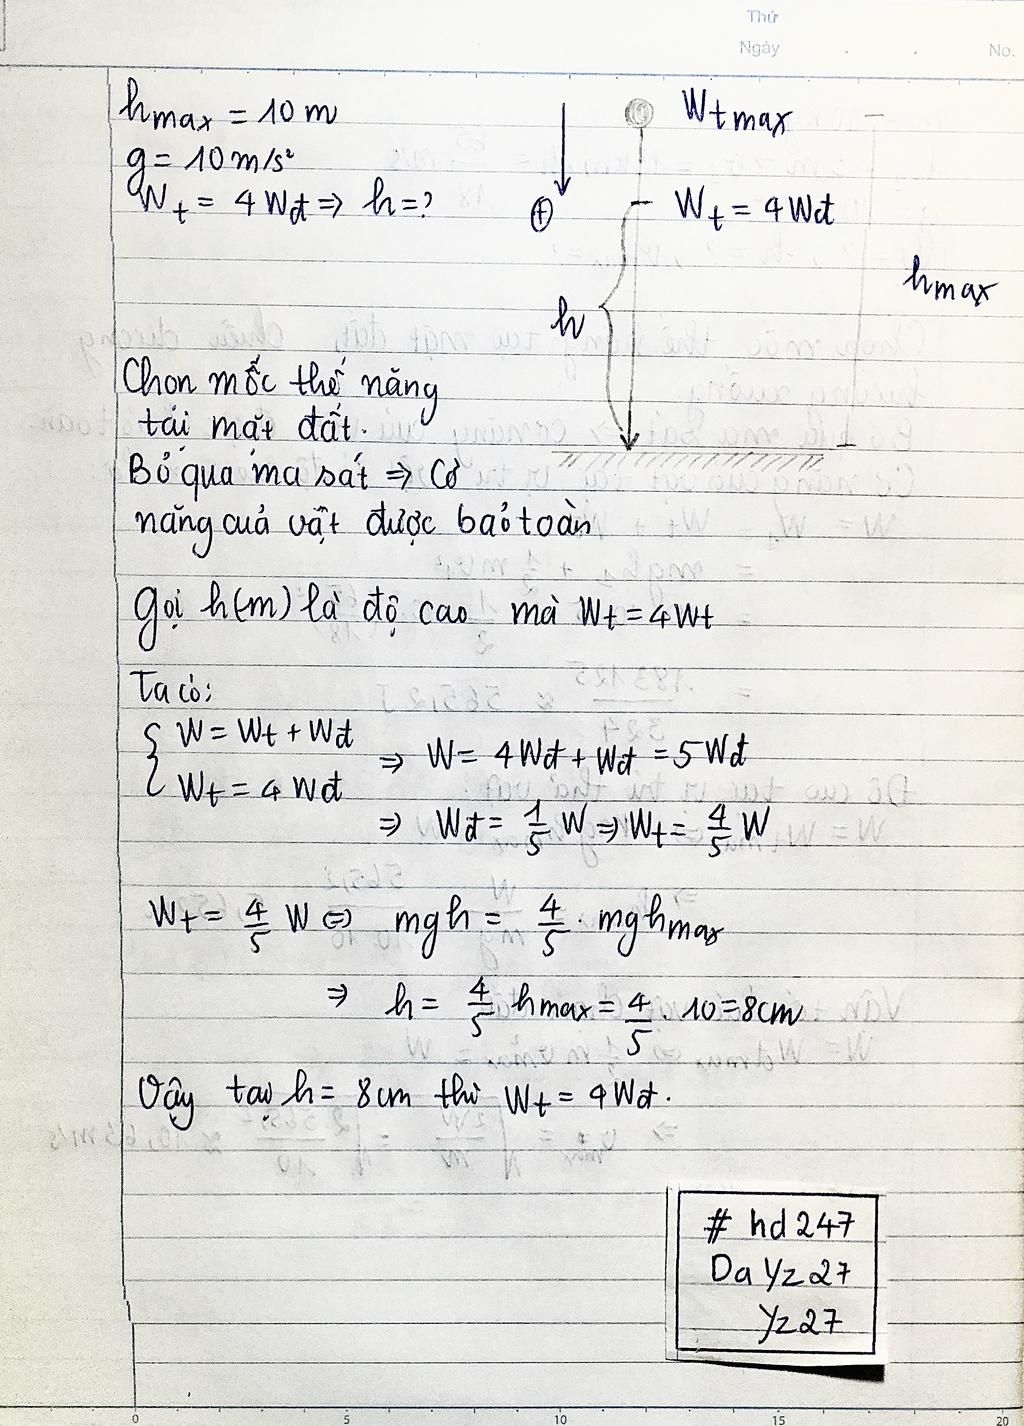 Thứ
Ngày . . No.
hmax = 10 m
g = 10 m/s²
Wt = 4Wđ ⇒ h = ?
Wt max
Wt = 4Wđ
+
h
hmax
Chọn mốc thế năng
tại mặt đất.
Bỏ qua ma sát ⇒ Cơ
năng của vật được bảo toàn
Gọi h(m) là độ cao mà Wt = 4Wt
Ta có:
{ W = Wt + Wđ
Wt = 4 Wđ
⇒ W = 4Wđ + Wđ = 5Wđ
⇒ Wđ = 1/5 W ⇒ Wt = 4/5 W
Wt = 4/5 W ⇔ mgh = 4/5 . mghmax
⇒ h = 4/5 hmax = 4/5 . 10 = 8cm
Vậy tại h = 8cm thì Wt = 4Wđ.
# hd 247
Da Yz 27
Yz 27
0 5 10 15 20